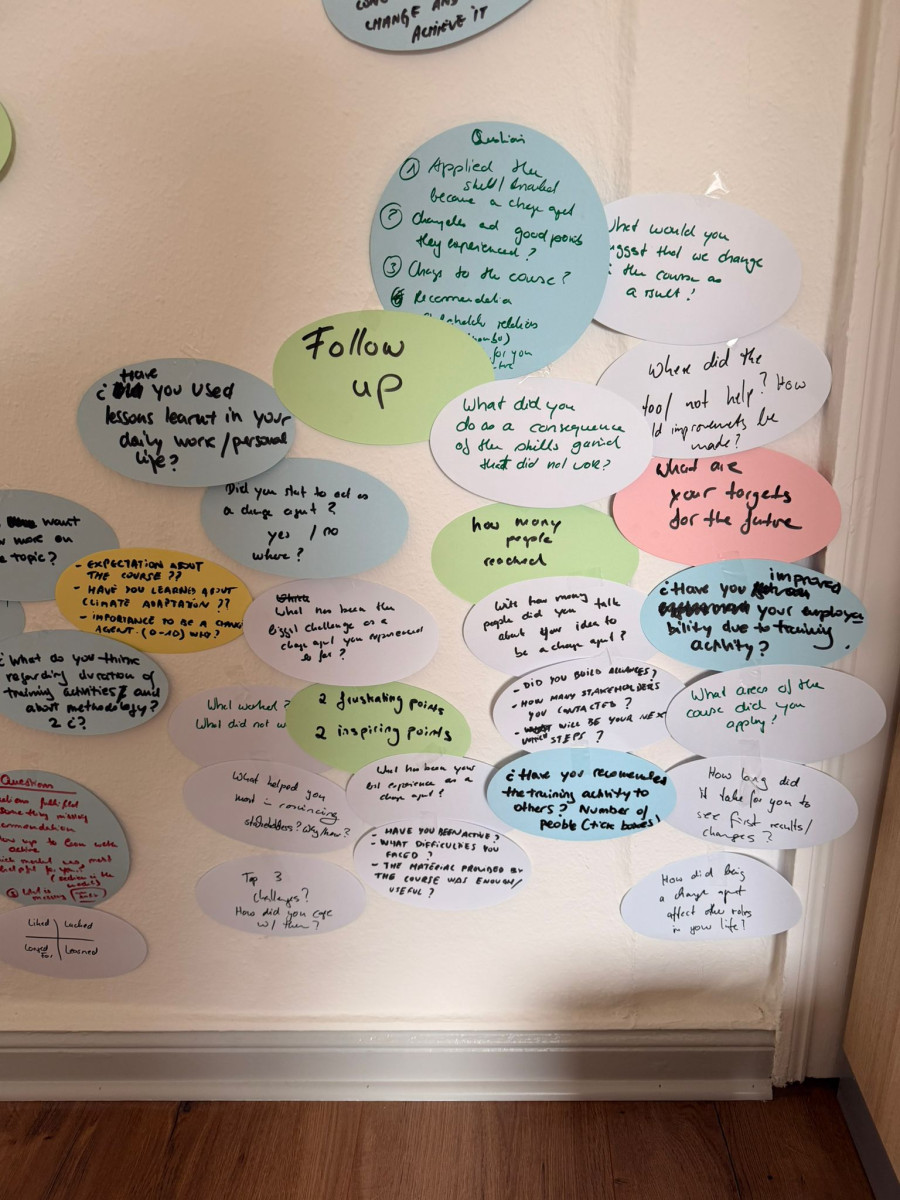 CHANGE AND
ACHIEVE IT
Questions
① Applied the
skill/
became a change agent
② and good points
they experienced?
③ Change to the course?
Recommendation
for you
What would you
suggest that we change
the course as
a result!
Follow
up
Where did the
tool not help? How
improvements be
made?
¿Have you used
lessons learnt in your
daily work/personal
life?
What did you
do as a consequence
of the skills gained
that did not work?
What are
your targets
for the future
Did you start to act as
a change agent?
yes / no
where?
want
more on
topic?
how many
people
reached
- EXPECTATION ABOUT
THE COURSE ??
- HAVE YOU LEARNED ABOUT
CLIMATE ADAPTATION ??
- IMPORTANCE TO BE A CHANGE
AGENT. (0-10) WHY?
What has been the
biggest challenge as a
change agent you experienced
so far?
With how many
people did you talk
about your idea to
be a change agent?
¿Have you improved
your employa
bility due to training
activity?
¿What do you think
regarding duration of
training activities? and
about methodology?
2 ¿?
What worked?
What did not w
2 frustrating points
2 inspiring points
- DID YOU BUILD ALLIANCES?
- HOW MANY STAKEHOLDERS
YOU CONTACTED?
- WHAT WILL BE YOUR NEXT
STEPS?
What areas of the
course did you
apply?
Questions
something missing
What helped you
most in convincing
stakeholders? Why/how?
What has been your
best experience as a
change agent?
¿Have you recommended
the training activity to
others? Number of
people (tick boxes)
How long did
it take for you to
see first results/
changes?
- HAVE YOU BEEN ACTIVE?
- WHAT DIFFICULTIES YOU
FACED?
- THE MATERIAL PROVIDED BY
THE COURSE WAS ENOUGH/
USEFUL?
Top 3
challenges?
How did you cope
w/ them?
How did being
a change agent
affect other roles
in your life?
Liked Lacked
Longed For Learned